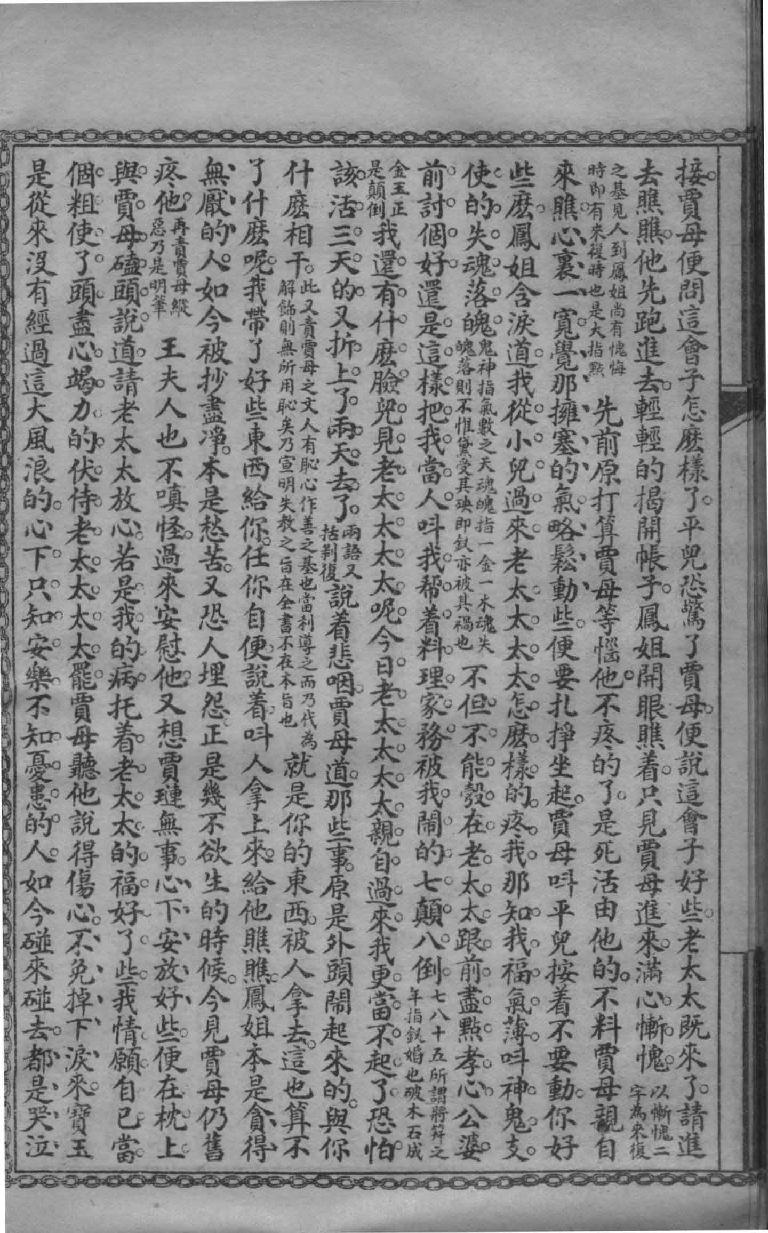 接賈母便問這會子怎麽樣了平兒恐驚了賈母便說這會子好些老太太既來了請進
去瞧瞧他先跑進去輕輕的揭開帳子鳳姐開眼瞧着只見賈母進來滿心慚愧以慚愧二字為來復
之基見人到鳳姐尚有愧悔時即有來復時也是大指㸃先前原打算賈母等惱他不疼的了是死活由他的不料賈母親自
來瞧心裏一寬覺那擁塞的氣略鬆動些便要扎掙坐起賈母呌平兒按着不要動你好
些麽鳳姐含淚道我從小兒過來老太太太太怎麽樣的疼我那知我福氣薄呌神鬼支
使的失魂落魄鬼神指氣數之天魂魄指一金一木魂失魄落則不惟黛受其殃即釵亦被其禍也不但不能彀在老太太跟前盡點孝心公婆
前討個好還是這樣把我當人呌我帮着料理家務被我閙的七顛八倒七八十五所謂將筓之年指釵婚也破木石成
金玉正是顛倒我還有什麽臉兒見老太太太太呢今日老太太太太親自過來我更當不起了恐怕
該活三天的又折上了兩天去了兩語又括剥復說着悲咽賈母道那些事原是外頭閙起來的與你
什麽相干此又責賈母之文人有恥心作善之基也當利導之而乃代為解飾則無所用恥矣乃宣明失教之旨在全書不在本旨也就是你的東西被人拿去這也算不
了什麽呢我帶了好些東西給你任你自便說着呌人拿上來給他瞧瞧鳳姐本是貪得
無厭的人如今被抄盡凈本是愁苦又恐人埋怨正是幾不欲生的時候今見賈母仍舊
疼他再責賈母縱惡乃是明筆王夫人也不嗔怪過來安慰他又想賈璉無事心下安放好些便在枕上
與賈母磕頭說道請老太太放心若是我的病托着老太太的福好了些我情願自己當
個粗使了頭盡心竭力的伏侍老太太太太罷賈母聽他說得傷心不免掉下淚來寶玉
是從來沒有經過這大風浪的心下只知安樂不知憂患的人如今碰來碰去都是哭泣